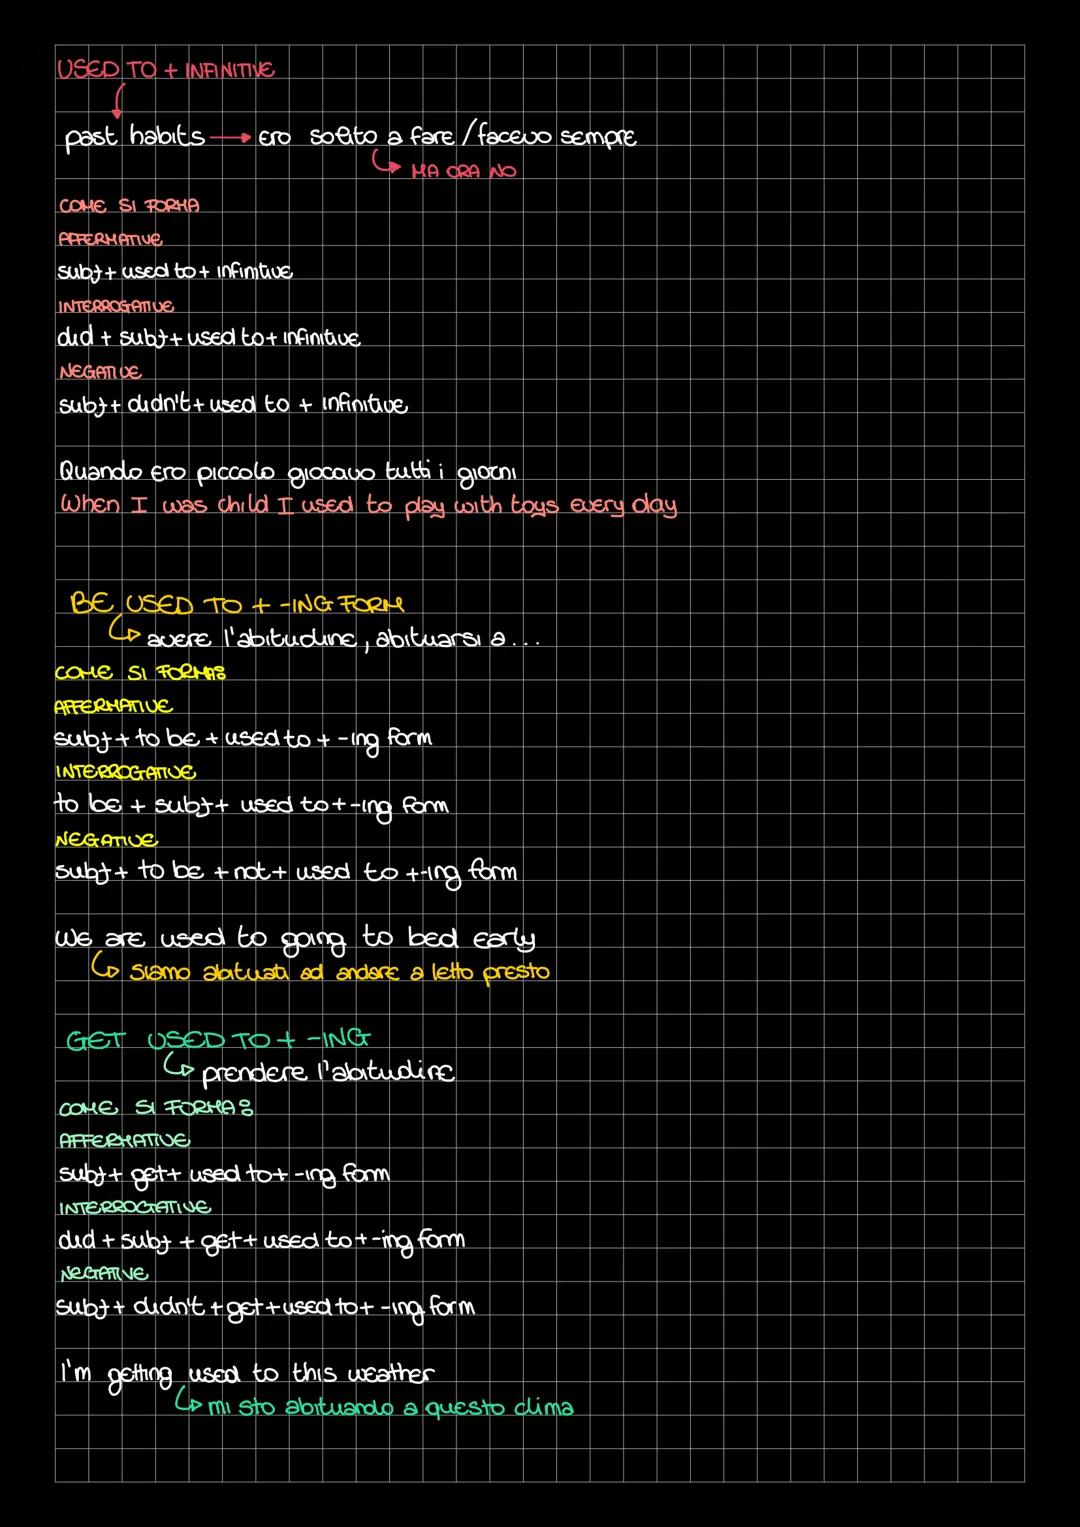 USED TO + INFINITIVE
past habits → ero solito a fare/facevo sempre
MA ORA NO
COME SI FORMA
AFFERMATIVE
subj + used to + infinitive
INTERROGATIVE
did + subj + used to + infinitive
NEGATIVE
subj + didn't + used to + infinitive
Quando ero piccolo giocavo tutti i giorni
When I was child I used to play with toys every day
BE USED TO + -ING FORM
avere l'abitudine, abituarsi a...
COME SI FORMA?
AFFERMATIVE
subj + to be + used to + -ing form
INTERROGATIVE
to be + subj + used to + -ing form
NEGATIVE
subj + to be + not + used to + -ing form
We are used to going to bed early
siamo abituati ad andare a letto presto
GET USED TO + -ING
prendere l'abitudine
COME SI FORMA?
AFFERMATIVE
subj + get + used to + -ing form
INTERROGATIVE
did + subj + get + used to + -ing form
NEGATIVE
subj + didn't + get + used to + -ing form
I'm getting used to this weather
mi sto abituando a questo clima